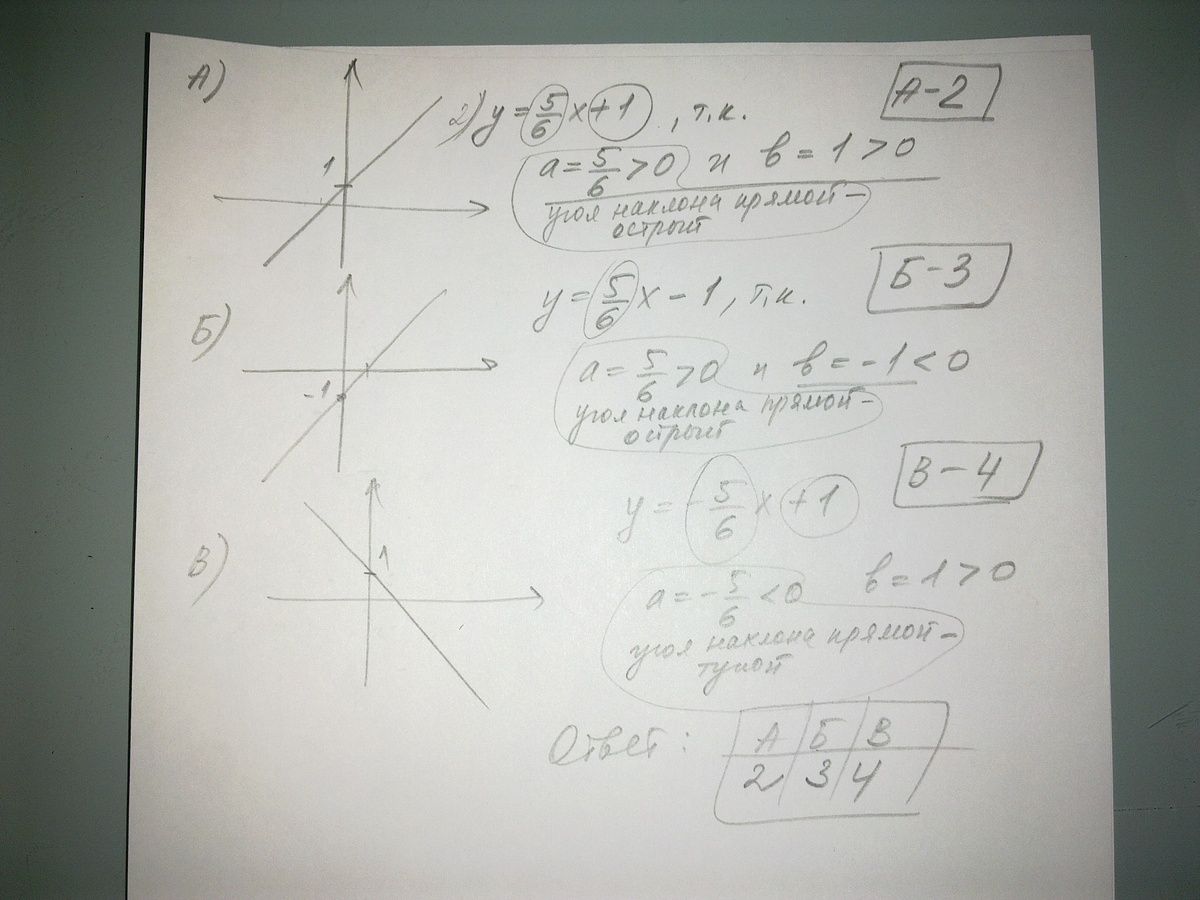 А)
1
2) y = 5/6 x + 1, т.к.
А-2
a = 5/6 > 0 и в = 1 > 0
угол наклона прямой -
острый
Б)
-1
y = 5/6 x - 1, т.к.
Б-3
a = 5/6 > 0 и в = -1 < 0
угол наклона прямой -
острый
В)
1
y = -5/6 x + 1
В-4
a = -5/6 < 0 в = 1 > 0
угол наклона прямой -
тупой
Ответ: А Б В
2 3 4